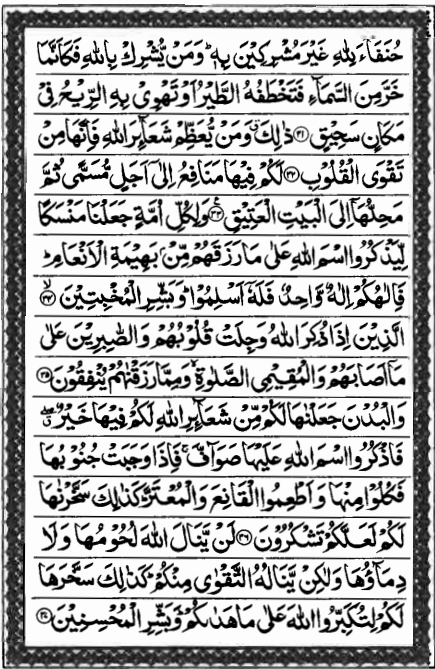 حُنَفَآءَ لِلّٰهِ غَيْرَ مُشْرِكِيْنَ بِهٖ ؕ وَمَنْ يُّشْرِكْ بِاللّٰهِ فَكَاَنَّمَا
خَرَّ مِنَ السَّمَآءِ فَتَخْطَفُهُ الطَّيْرُ اَوْ تَهْوِيْ بِهِ الرِّيْحُ فِيْ
مَكَانٍ سَحِيْقٍ ﴿۳۱﴾ ذٰلِكَ ۗ وَمَنْ يُّعَظِّمْ شَعَآئِرَ اللّٰهِ فَاِنَّهَا مِنْ
تَقْوَى الْقُلُوْبِ ﴿۳۲﴾ لَكُمْ فِيْهَا مَنَافِعُ اِلٰٓى اَجَلٍ مُّسَمًّى ثُمَّ
مَحِلُّهَاۤ اِلَى الْبَيْتِ الْعَتِيْقِ ﴿۳۳﴾ وَلِكُلِّ اُمَّةٍ جَعَلْنَا مَنْسَكًا
لِّيَذْكُرُوا اسْمَ اللّٰهِ عَلٰى مَا رَزَقَهُمْ مِّنْۢ بَهِيْمَةِ الْاَنْعَامِ ؕ
فَاِلٰهُكُمْ اِلٰهٌ وَّاحِدٌ فَلَهٗۤ اَسْلِمُوْا ؕ وَبَشِّرِ الْمُخْبِتِيْنَ ﴿۳۴﴾ ۙ
الَّذِيْنَ اِذَا ذُكِرَ اللّٰهُ وَجِلَتْ قُلُوْبُهُمْ وَالصّٰبِرِيْنَ عَلٰى
مَاۤ اَصَابَهُمْ وَالْمُقِيْمِي الصَّلٰوةِ ۙ وَمِمَّا رَزَقْنٰهُمْ يُنْفِقُوْنَ ﴿۳۵﴾
وَالْبُدْنَ جَعَلْنٰهَا لَكُمْ مِّنْ شَعَآئِرِ اللّٰهِ لَكُمْ فِيْهَا خَيْرٌ ۖ
فَاذْكُرُوا اسْمَ اللّٰهِ عَلَيْهَا صَوَآفَّ ۚ فَاِذَا وَجَبَتْ جُنُوْبُهَا
فَكُلُوْا مِنْهَا وَاَطْعِمُوا الْقَانِعَ وَالْمُعْتَرَّ ؕ كَذٰلِكَ سَخَّرْنٰهَا
لَكُمْ لَعَلَّكُمْ تَشْكُرُوْنَ ﴿۳۶﴾ لَنْ يَّنَالَ اللّٰهَ لُحُوْمُهَا وَلَا
دِمَآؤُهَا وَلٰكِنْ يَّنَالُهُ التَّقْوٰى مِنْكُمْ ؕ كَذٰلِكَ سَخَّرَهَا
لَكُمْ لِتُكَبِّرُوا اللّٰهَ عَلٰى مَا هَدٰىكُمْ ؕ وَبَشِّرِ الْمُحْسِنِيْنَ ﴿۳۷﴾